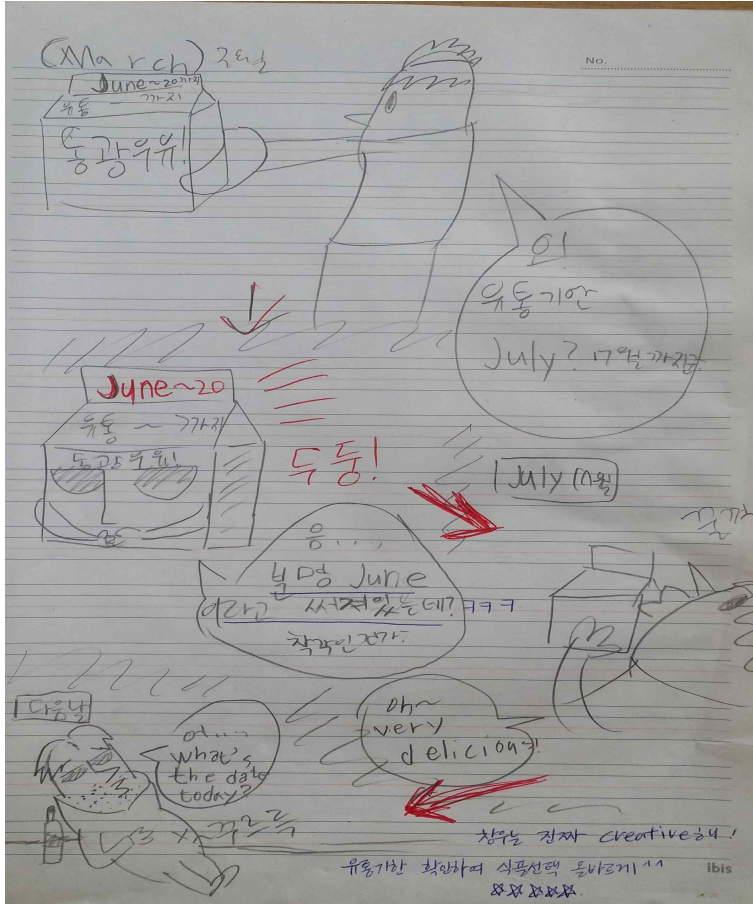 (March)
June~20까지
유통 ~ 까지
동광우유!
No.
오!
유통기한
July? 7월까지군.
June~20
유통 ~ 까지
동광우유!
두둥!
July (7월
음....
분명 June
이라고 써져있는데? ㅋㅋㅋ
착각인건가?
oh~
very
delicious!
다음날
어....
what's
the date
today?
꾸르륵
창우는 진짜 creative해!
유통기한 확인하여 식품선택 올바르게! ^^
☆☆☆☆☆
ibis